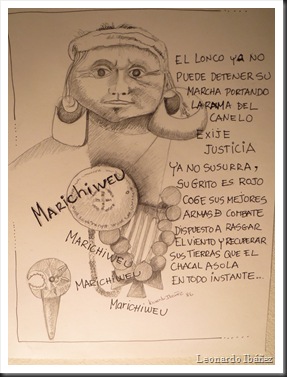 EL LONCO YA NO
PUEDE DETENER SU
MARCHA PORTANDO
LA RAMA DEL
CANELO
EXIJE
JUSTICIA
YA NO SUSURRA,
SU GRITO ES ROJO
COGE SUS MEJORES
ARMAS D COMBATE
DISPUESTO A RASGAR
EL VIENTO Y RECUPERAR
SUS TIERRAS QUE EL
CHACAL ASOLA
EN TODO INSTANTE...
MARICHIWEU
MARICHIWEU
MARICHIWEU
MARICHIWEU
Leonardo Ibáñez